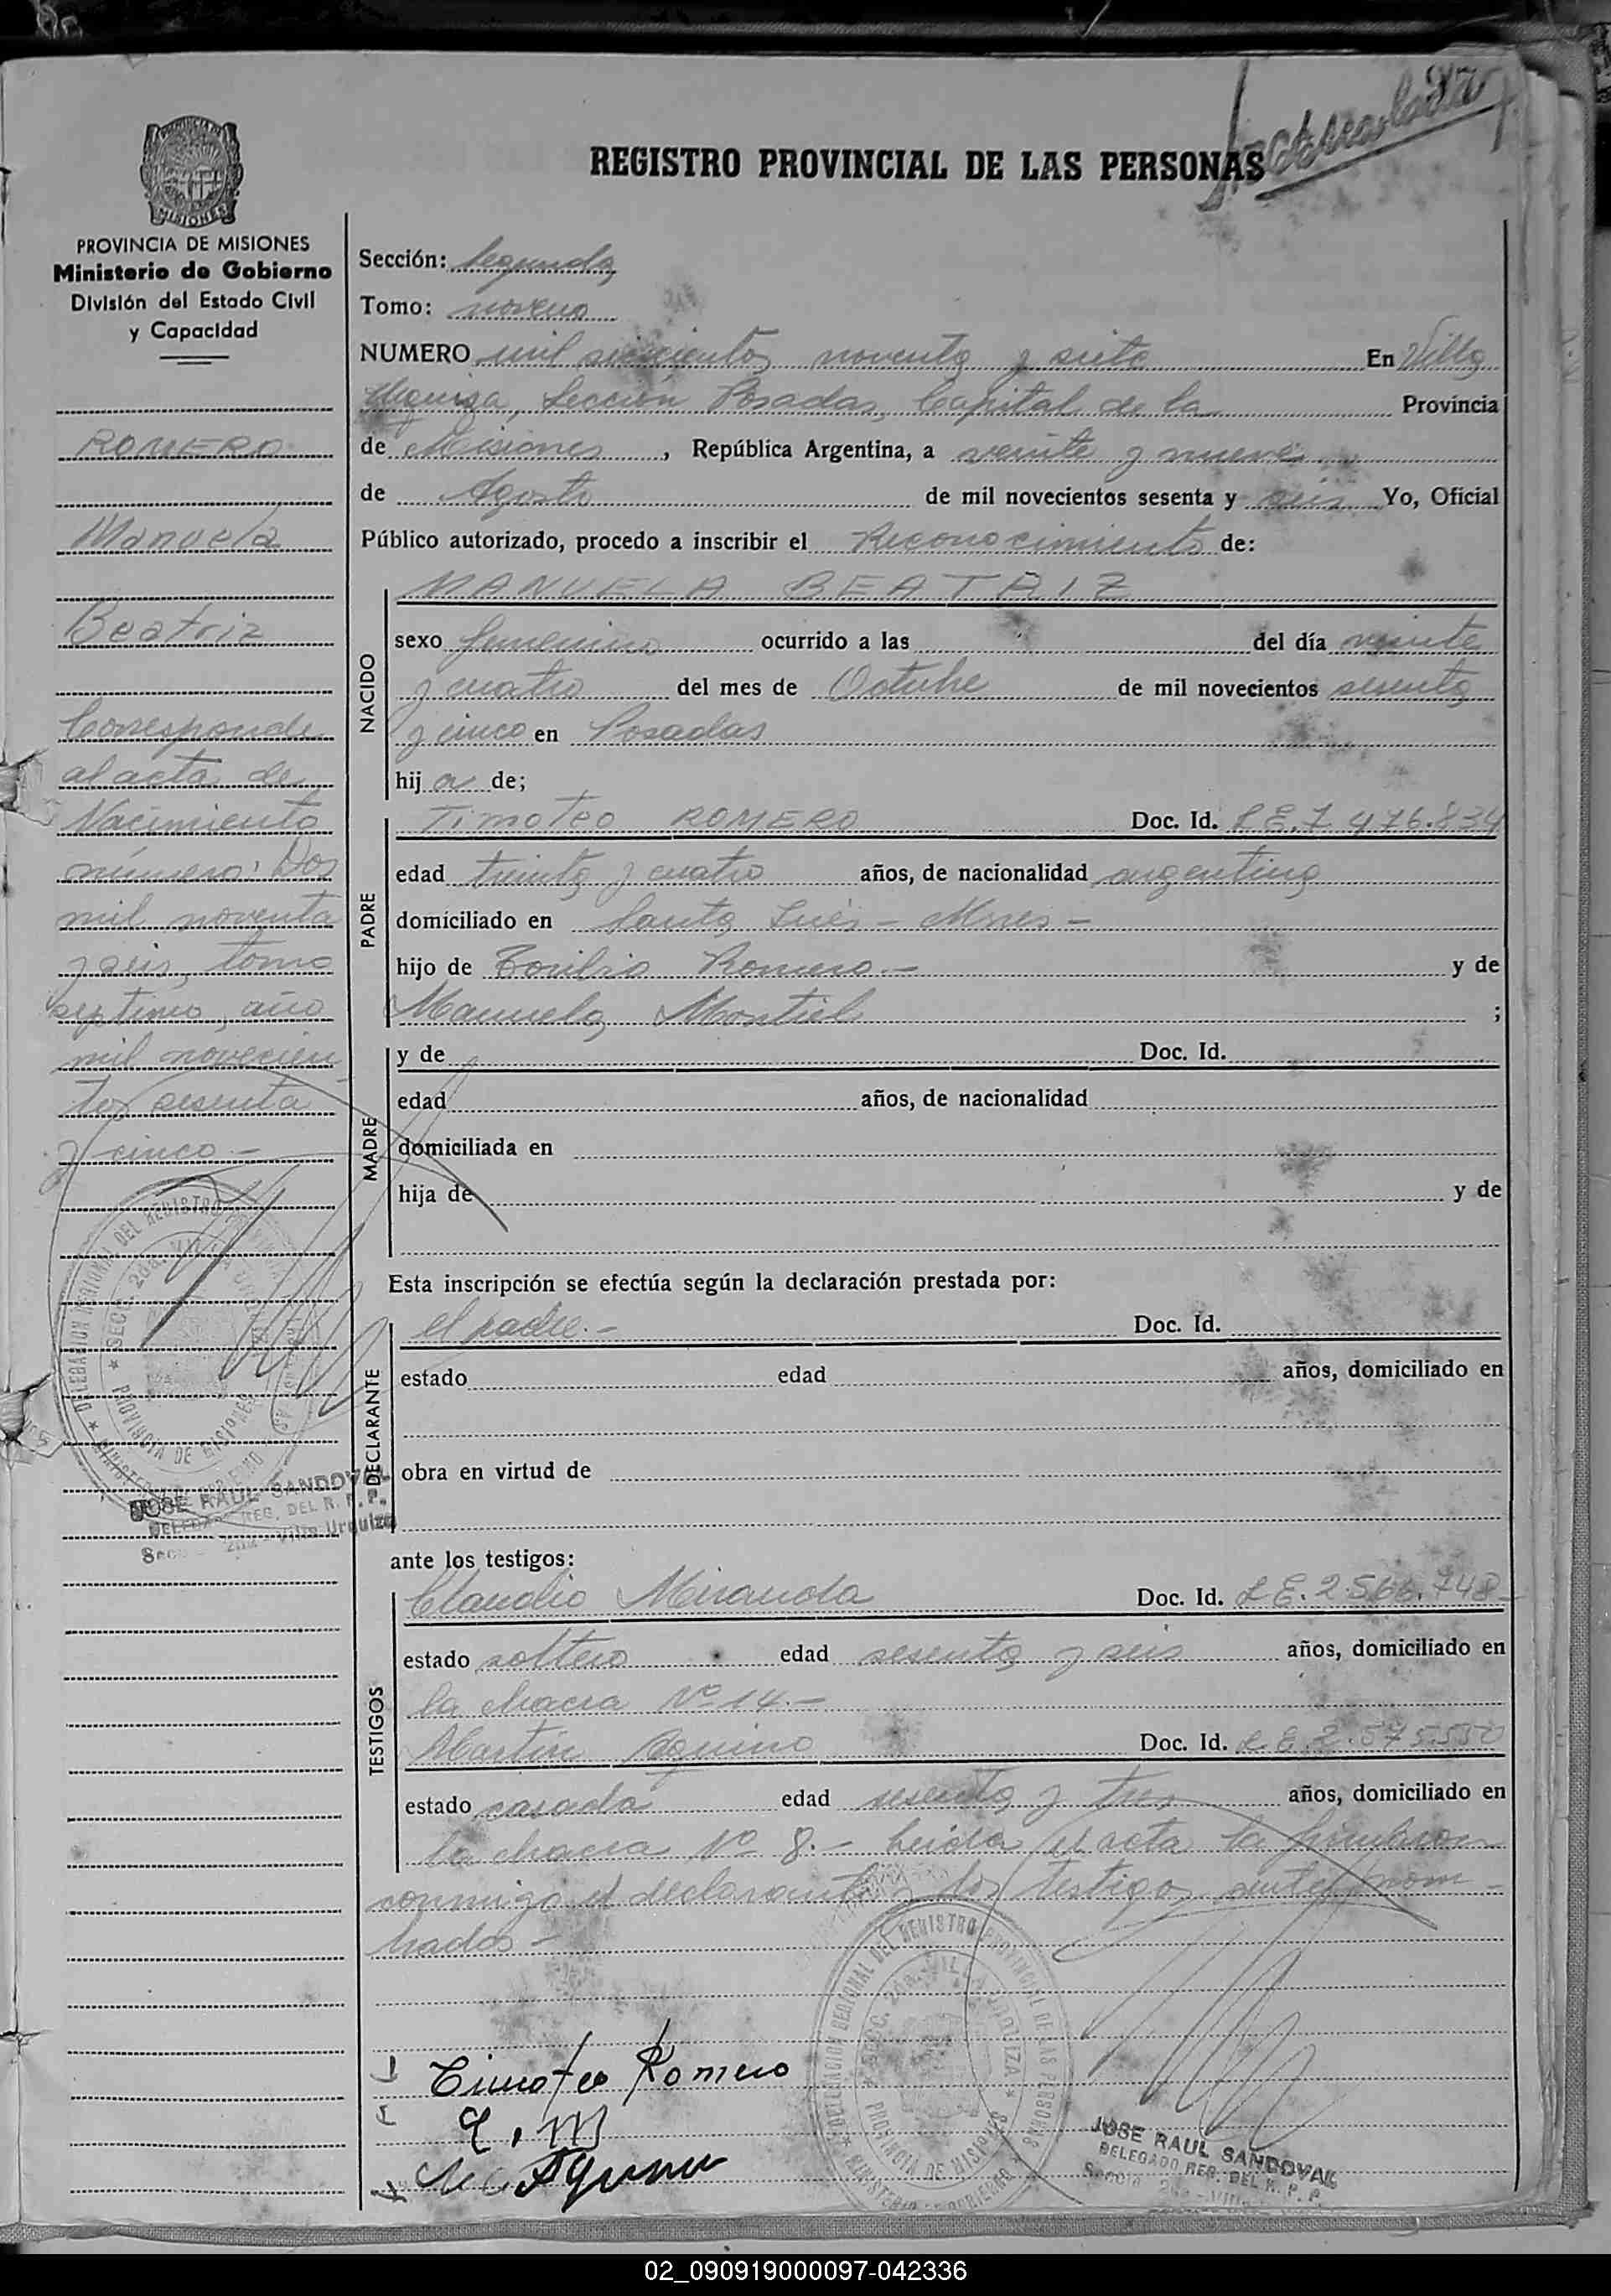 REGISTRO PROVINCIAL DE LAS PERSONAS
PROVINCIA DE MISIONES
Ministerio de Gobierno
División del Estado Civil
y Capacidad
ROMERO
Manuela
Beatriz
Corresponde
al acta de
Nacimiento
número: Dos
mil noventa
y seis, tomo
septimo, año
mil novecien
tos sesenta
y cinco.-
JOSE RAUL SANDOVAL
Sección: Segunda
Tomo: noveno
NUMERO mil seiscientos noventa y siete En Villa
Urquiza, Sección Posadas, Capital de la Provincia
de Misiones, República Argentina, a veinte y nueve
de Agosto de mil novecientos sesenta y seis Yo, Oficial
Público autorizado, procedo a inscribir el Reconocimiento de:
MANUELA BEATRIZ
NACIDO
sexo femenino ocurrido a las del día veinte
y cuatro del mes de Octubre de mil novecientos sesenta
y cinco en Posadas
hij a de;
PADRE
Timoteo ROMERO Doc. Id. L.E. 7.476.834
edad treinta y cuatro años, de nacionalidad argentina
domiciliado en Santa Inés - Mnes -
hijo de Toribio Romero.- y de
Manuela Montiel ;
MADRE
y de Doc. Id.
edad años, de nacionalidad
domiciliada en
hija de y de
Esta inscripción se efectúa según la declaración prestada por:
DECLARANTE
el padre.- Doc. Id.
estado edad años, domiciliado en
obra en virtud de
ante los testigos:
TESTIGOS
Claudio Miranda Doc. Id. L.E. 2.566.748-
estado soltero edad sesenta y seis años, domiciliado en
la chacra Nº 14.-
Martín Aquino Doc. Id. L.E. 2.575.550
estado casado edad sesenta y tres años, domiciliado en
la chacra Nº 8.- Leida el acta la firmaron
conmigo el declarante y los testigos antes nom-
brados-
Timoteo Romero
Aquino
JOSE RAUL SANDOVAL
DELEGADO REG. DEL R. P. P.
02_090919000097-042336